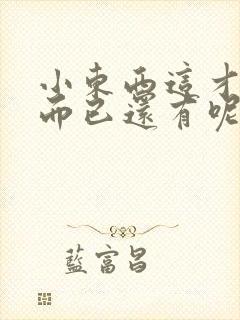 小東西這才
而已還有呢
藍富昌